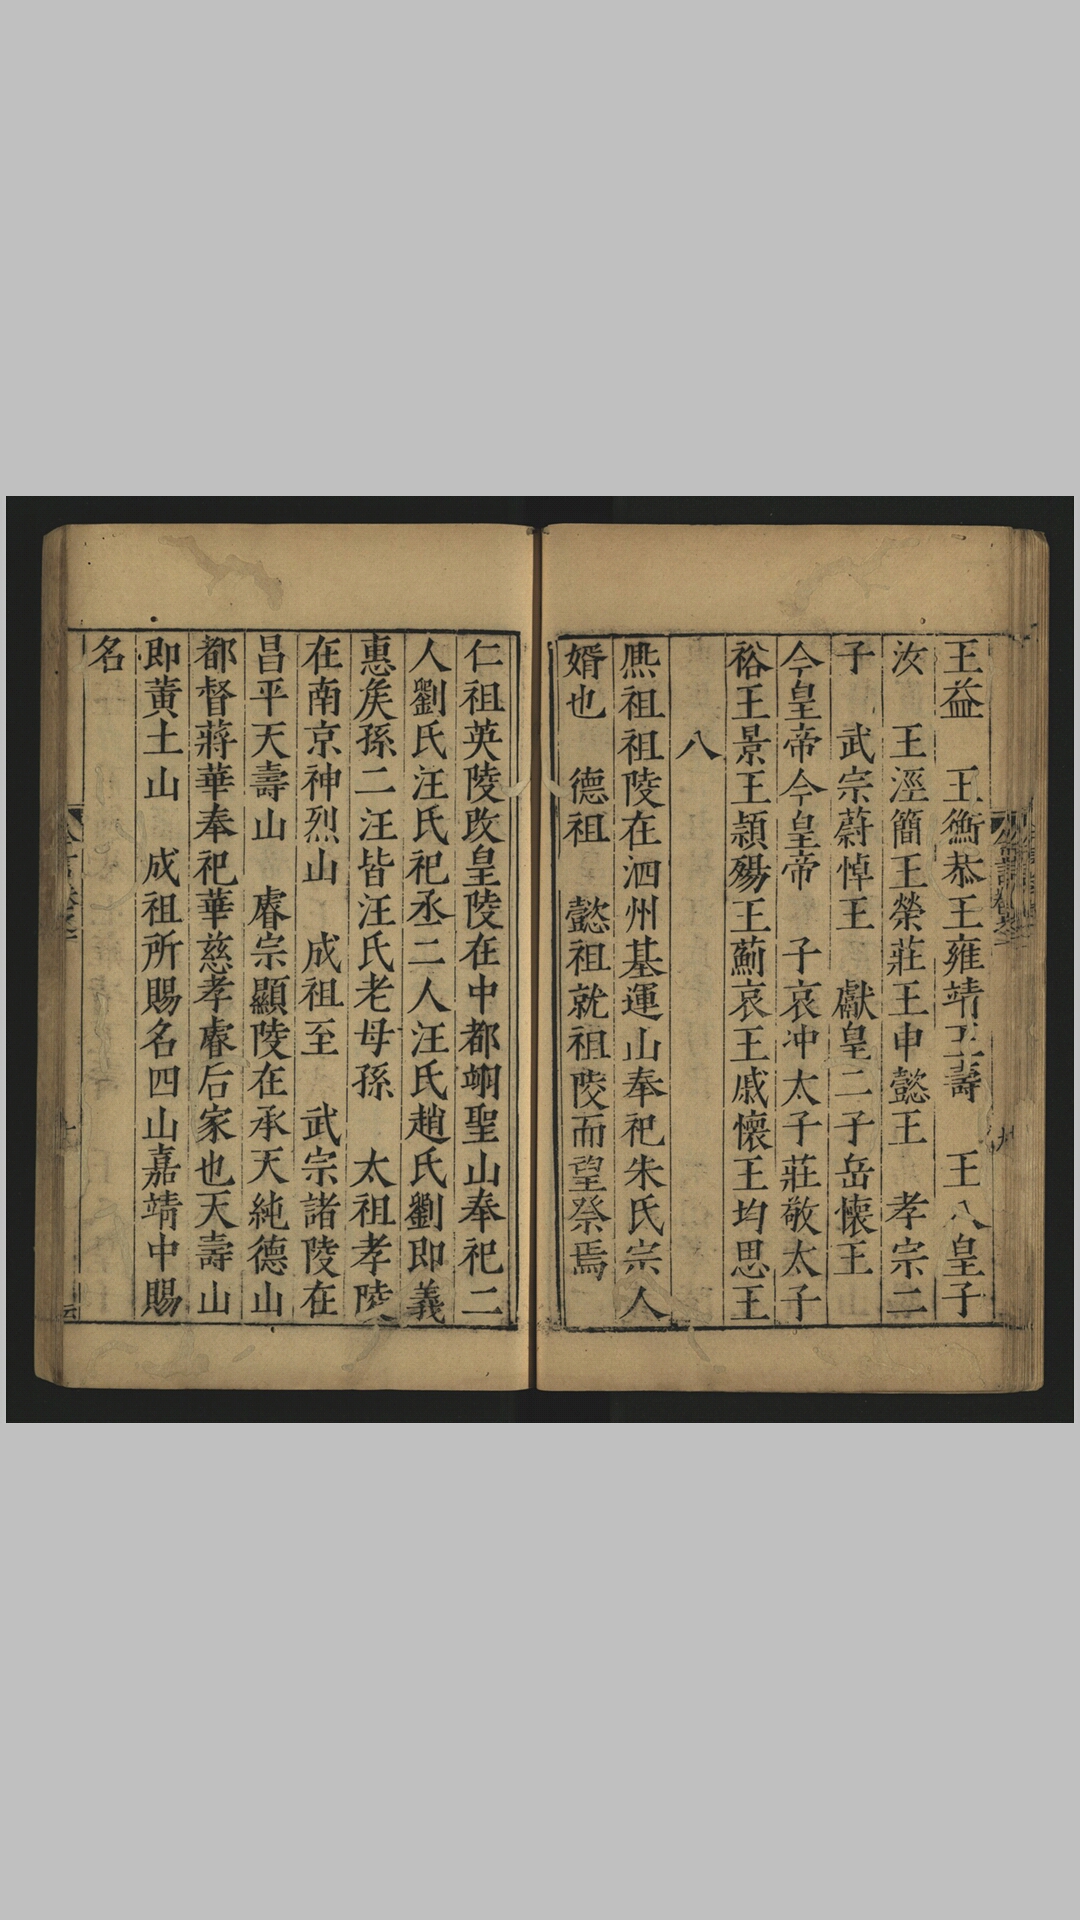 王益　王衡恭王雍靖王壽　王八皇子
汝　王涇簡王榮莊王申懿王　孝宗二
子　武宗蔚悼王　獻皇二子岳懷王
今皇帝今皇帝　子哀冲太子莊敬太子
裕王景王頴殤王薊哀王戚懷王均思王
八
熈祖祖陵在泗州基運山奉祀朱氏宗人
婿也　德祖　懿祖就祖陵而望祭焉
仁祖英陵改皇陵在中都翊聖山奉祀二
人劉氏汪氏祀丞二人汪氏趙氏劉即義
惠矦孫二汪皆汪氏老母孫　太祖孝陵
在南京神烈山　成祖至　武宗諸陵在
昌平天壽山　睿宗顯陵在承天純德山
都督蔣華奉祀華慈孝睿后家也天壽山
即黃土山　成祖所賜名四山嘉靖中賜
名